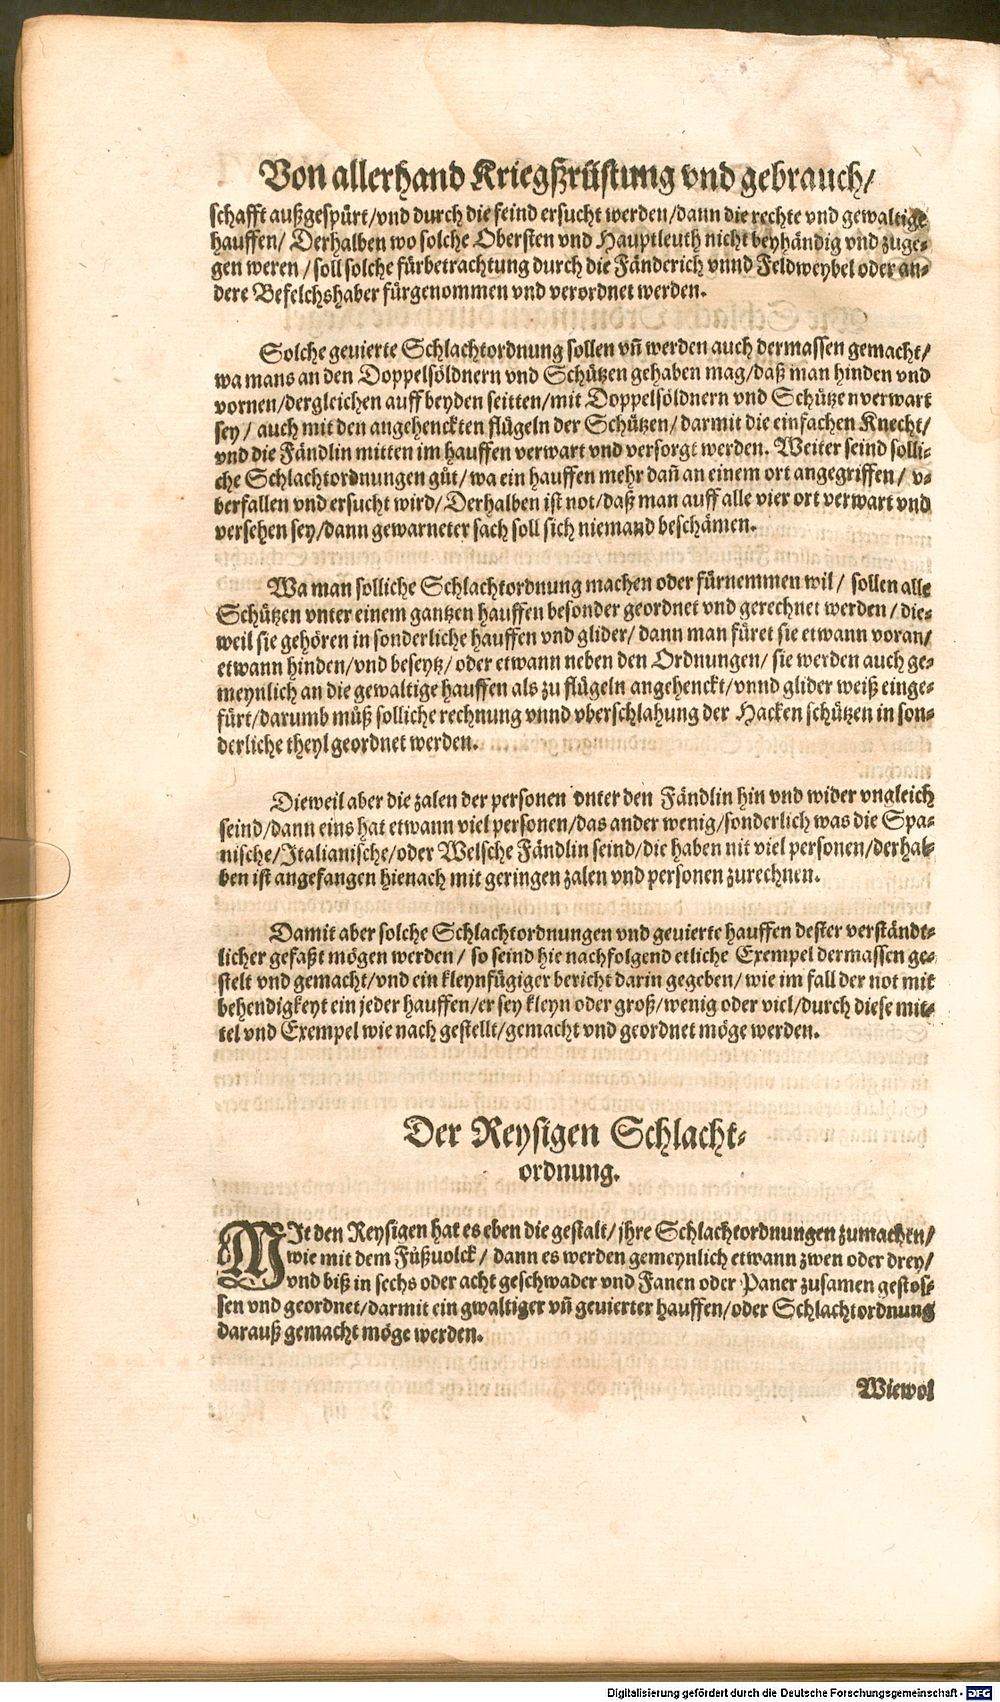 Von allerhand Kriegßrüstung vnd gebrauch/
schafft außgespürt/vnd durch die feind ersucht werden/dann die rechte vnd gewaltige
hauffen/ Derhalben wo solche Obersten vnd Hauptleuth nicht beyhändig vnd zuge-
gen weren/soll solche fürbetrachtung durch die Fänderich vnnd Feldweybel oder an-
dere Befelchshaber fürgenommen vnd verordnet werden.
Solche gevierte Schlachtordnung sollen vn̄ werden auch dermassen gemacht/
wa mans an den Doppelsöldnern vnd Schützen gehaben mag/daß man hinden vnd
vornen/dergleichen auff beyden seitten/mit Doppelsöldnern vnd Schützen verwart
sey/ auch mit den angehenckten flügeln der Schützen/darmit die einfachen Knecht/
vnd die Fändlin mitten im hauffen verwart vnd versorgt werden. Weiter seind solli-
che Schlachtordnungen gůt/wa ein hauffen mehr dan̄ an einem ort angegriffen/ v-
berfallen vnd ersucht wird/Derhalben ist not/daß man auff alle vier ort verwart vnd
versehen sey/dann gewarneter sach soll sich niemand beschämen.
Wa man solliche Schlachtordnung machen oder fürnemmen wil/ sollen alle
Schützen vnter einem gantzen hauffen besonder geordnet vnd gerechnet werden/die-
weil sie gehören in sonderliche hauffen vnd glider/dann man füret sie etwann voran/
etwann hinden/vnd beseytz/oder etwann neben den Ordnungen/sie werden auch ge-
meynlich an die gewaltige hauffen als zu flügeln angehenckt/vnnd glider weiß einge-
fürt/darumb můß solliche rechnung vnnd vberschlahung der Hacken schützen in son-
derliche theyl geordnet werden.
Dieweil aber die zalen der personen vnter den Fändlin hin vnd wider vngleich
seind/dann eins hat etwann viel personen/das ander wenig/sonderlich was die Spa-
nische/Italianische/oder Welsche Fändlin seind/die haben nit viel personen/derhal-
ben ist angefangen hienach mit geringen zalen vnd personen zurechnen.
Damit aber solche Schlachtordnungen vnd gevierte hauffen dester verständt-
licher gefaßt mögen werden/ so seind hie nachfolgend etliche Exempel dermassen ge-
stelt vnd gemacht/vnd ein kleynfügiger bericht darin gegeben/wie im fall der not mit
behendigkeyt ein jeder hauffen/er sey kleyn oder groß/wenig oder viel/durch diese mit-
tel vnd Exempel wie nach gestellt/gemacht vnd geordnet möge werden.
Der Reysigen Schlacht-
ordnung.
MIt den Reysigen hat es eben die gestalt/jhre Schlachtordnungen zumachen/
wie mit dem Fůßuolck/ dann es werden gemeynlich etwann zwen oder drey/
vnd biß in sechs oder acht geschwader vnd Fanen oder Paner zusamen gestos-
sen vnd geordnet/darmit ein gwaltiger vn̄ gevierter hauffen/oder Schlachtordnung
darauß gemacht möge werden.
Wiewol
Digitalisierung gefördert durch die Deutsche Forschungsgemeinschaft - DFG